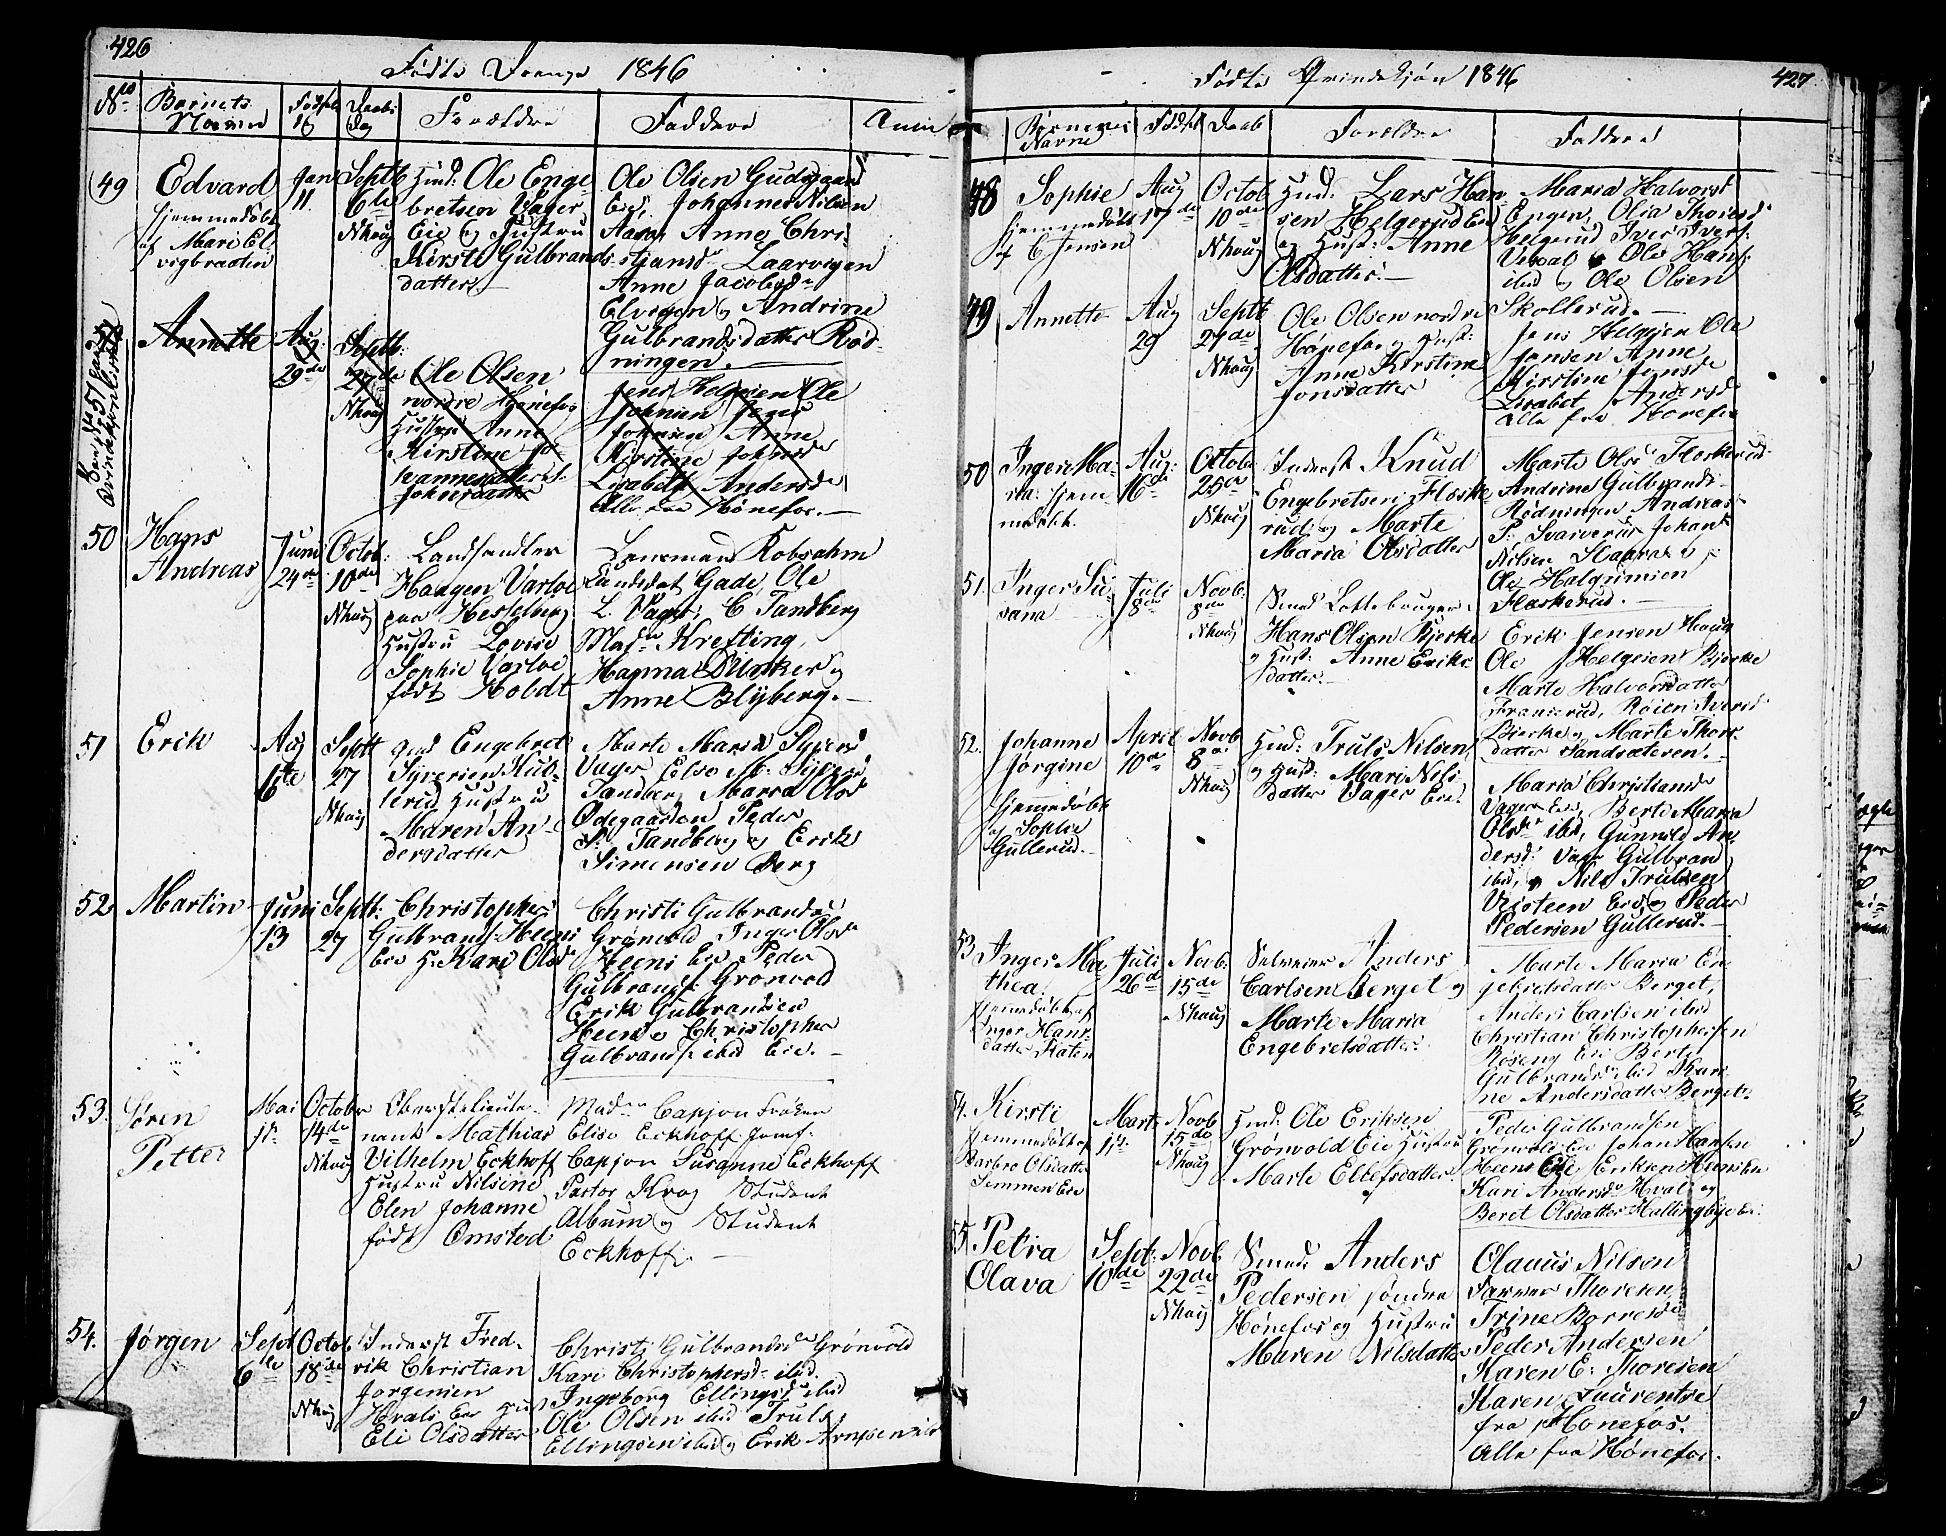 426
Fødte Drenge 1846
No
Barnets
Navne
Fødsels
Daabs
Dag
Forældre
Faddere
49
Edvard
hjemmedøbt
af Mari El-
vigbraaten
Jan
11.
Septb
6te
Nhoug
Huusm: Ole Enge-
bretsen Vager
Eie og Hustru
Kirsti Gulbrands-
datter
Ole Olsen Gudsgaard
Eie, Johannes Nilsen
Anne Chri-
stiansd. Laarvigen
Anne Jacobsd.
Elvigen og Andrine
Gulbrandsdatter Rød-
ningen.
Annette
Aug:
29de
Septb:
27de
Nhoug
Ole Olsen
nordre Hønefos
Hustru Anne
Kirstine Jo-
hannesdatter
Johnsdatter
Jens Helgesen Ole
Johnsen
Johnsen Anne
Kirstine Johnsd
Lisabeth Andersd
Alle fra Hønefos.
50
Hans
Andreas
Juni
24de
Octob:
10de
Nhoug
Landhandler
Haagen Varloe
paa Hesselberg
Hustru Lovise
Sophie Varloe
født Holdt
Lensmand Kobsahm
Candidat Gade, Ole
L. Vager, C Tandberg
Madm Krefting,
Hanna Dunker og
Anne Blyberg.
51
Erik
Aug
16te
Septb
27
Nhoug
Engebret
Syversen Hul-
lerud Hustru
Maren An-
dersdatter
Marte Maria Syversd
Vager Else M: Syversd
Tandberg Maria Olsd
Ødegaarden Peder
P: Tandberg og Erik
Simensen Berg
52
Martin
Juni
13
Septb:
27
Christopher
Gulbrands: Heens
Eie H: Kari Olsd
Christi Gulbrandsd
Grønvold Inger Olsd
Heens Eie Peder
Gulbrands: Grønvold
Erik Gulbrandsen
Heen og Christopher
Gulbrands: ibid Eie.
53.
Søren
Petter
Mai
Octobr
14de
Nhoug
Oberstlieute-
nant Mathias
Vilhelm Eckhoff
Hustru Nilsine
Elen Johanne
født Omsted
Madm Capjon Frøken
Elise Eckhoff Jomf:
Capjon Susanne Eckhoff
Pastor Krog Student
Album og Student
Eckhoff.
54.
Jørgen
Sept
6te
Octob
18de
Nhoug
Inderst Fred-
rik Christian
Jørgensen
Hvals Eie Hust
Eli Olsdatter
Christi Gulbrandsd Grønvold
Kari Christophersd ibid.
Ingeborg Ellingsd ibid
Ole Olsen ibid Truls
Ellingsen ibid og Erik Arnesen ibid
Fødte Qvindekjøn 1846
427
Børnenes
Navne
Fødsel
Daab
Forældre
Faddere
48
Sophie
hjemmedøbt
af C Jensen
Aug
17de
Octob
10de
Nhoug
Huusm: Lars Han-
sen Helgerud Eie
og Hust: Anne
Olsdatter.
Maria Halvorsd
Engen, Olia Thoresd
Helgerud Iver Ivers:
Vesal Ole Hans:
ibid og Ole Olsen
Skollerud.
49
Annette
Aug
29
Septb
27de
Nhoug
Ole Olsen nordre
Hønefos og Hust:
Anne Kirstine
Jonsdatter
Jens Helgesen Ole
Jonsen Anne
Kirstine Jonsd
Lisabet Andersd
alle fra Hønefos
50
Inger Ma-
ria hjem-
medøbt.
Aug:
16de
Octob:
25de
Nhoug
Inderst Knud
Engebretsen Floske-
rud og Marte
Maria Olsdatter
Marte Olsd Floskerud
Andrine Gulbrandsd
Rødningen Andreas
P: Svarverud Johan
Nilsen
Ole Halgrimsen
Floskerud.
51.
Inger Su-
sana
Juli
8de
Novb.
8de
Nhoug
Hans Olsen Bjerke
og Hust: Anne Eriks-
datter.
Erik Jensen Houg
Ole Helgesen Bjerke
Marte Halvorsdatter
Iversd
Bjerke og Marte Thors-
datter Sandsæteren.
52.
Johanne
Jørgine
hjemmedøbt
af Sophie
Gullerud.
April
10de
Novb
8de
Nhoug
Huusm: Truls Nilsen
og Hust: Mari Nils-
datter Vager Eie.
Maria Christiansd
Vager Eie, Berte Maria
Olsd ibid, Gunnild An-
dersd: Vager Gulbrand
ibid, og Nils Trulsen
Veisteen Eie og Peder
Pedersen Gullerud.
53
Inger Ma-
thea.
hjemmedøbt af
Inger Hans-
datter
Juli
26de
Novb.
15de
Nhoug
Selveier Anders
Carlsen Berget og
Marte Maria
Engebretsdatter.
Marte Maria En-
gebretsdatter Berget,
Anders Carlsen ibid
Christian Christophersen
Røseng Eie Berte
Gulbrandsd ibid Kari-
ne Andersdatter Berget.
54.
Kirsti
hjemmedøbt af
Barbro Olsdatter
Semmen Eie
Marts
Novb
15de
Nhoug
Huusm: Ole Eriksen
Grønvold Eie Hustru
Marte Ellefsdatter
Peder Gulbrandsen
Grønvold Eie Johan Hansen
Heens Eie Eriksen Heens Eie
Kari Andersd Hval og
Beret Olsdatter Hallingbye Eie.
55.
Petra
Olava
Sept:
10de
Novb
22de
Nhoug
Smed: Anders
Pedersen søndre
Hønefos og Hustru
Maren Nilsdatter
Olaus Nilsen
Farver Thoresen
Trine Borresd
Peder Andersen
Karen E: Thoresen
Karen Laurentse
fra Hønefos.
Alle fra Hønefos.